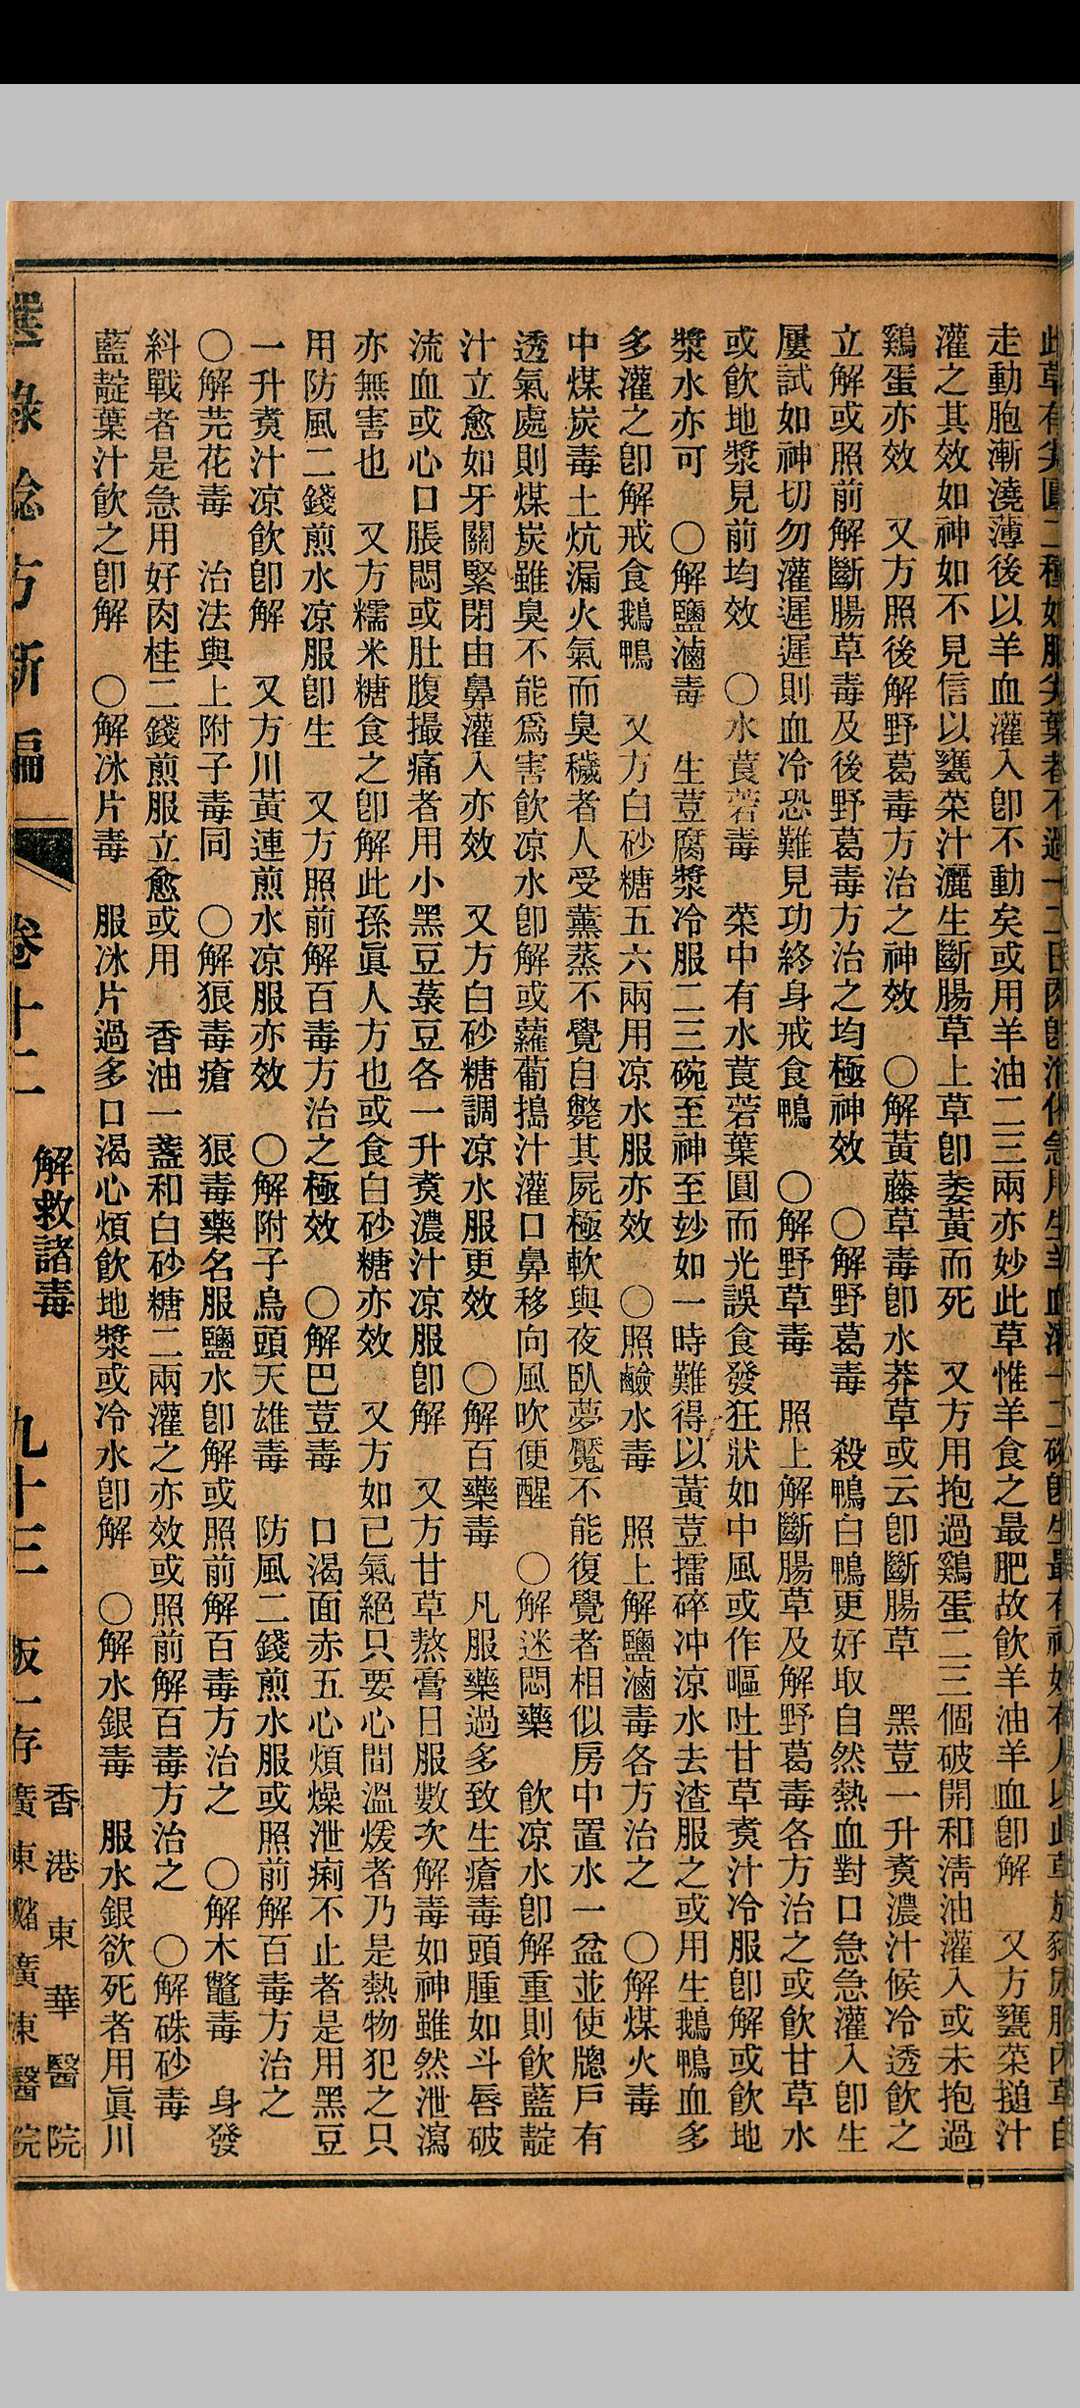 此草有尖圓二種如服尖葉者不過一二日肉卽消化急用生羊血灌一二碗卽生最有神如有人以此草放豬尿脬內草自
走動胞漸澆薄後以羊血灌入卽不動矣或用羊油二三兩亦妙此草惟羊食之最肥故飲羊油羊血卽解　又方甕菜搥汁
灌之其效如神如不見信以甕菜汁灑生斷腸草上草卽萎黃而死　又方用抱過鷄蛋二三個破開和淸油灌入或未抱過
鷄蛋亦效　又方照後解野葛毒方治之神效　〇解黃藤草毒卽水莽草或云卽斷腸草　黑荳一升煑濃汁候冷透飲之
立解或照前解斷腸草毒及後野葛毒方治之均極神效　〇解野葛毒　殺鴨白鴨更好取自然熱血對口急急灌入卽生
屢試如神切勿灌遲遲則血冷恐難見功終身戒食鴨　〇解野草毒　照上解斷腸草及解野葛毒各方治之或飲甘草水
或飲地漿見前均效　〇水莨菪毒　菜中有水莨菪葉圓而光誤食發狂狀如中風或作嘔吐甘草煑汁冷服卽解或飲地
漿水亦可　〇解鹽滷毒　生荳腐漿冷服二三碗至神至玅如一時難得以黃荳擂碎冲涼水去渣服之或用生鵝鴨血多
多灌之卽解戒食鵝鴨　又方白砂糖五六兩用凉水服亦效　〇照鹼水毒　照上解鹽滷毒各方治之　〇解煤火毒
中煤炭毒土炕漏火氣而臭穢者人受薰蒸不覺自斃其屍極軟與夜臥夢魘不能復覺者相似房中置水一盆並使牕戶有
透氣處則煤炭雖臭不能爲害飲凉水卽解或蘿蔔搗汁灌口鼻移向風吹便醒　〇解迷悶藥　飲凉水卽解重則飲藍靛
汁立愈如牙關緊閉由鼻灌入亦效　又方白砂糖調凉水服更效　〇解百藥毒　凡服藥過多致生瘡毒頭腫如斗唇破
流血或心口脹悶或肚腹撮痛者用小黑豆菉豆各一升煑濃汁凉服卽解　又方甘草熬膏日服數次解毒如神雖然泄瀉
亦無害也　又方糯米糖食之卽解此孫眞人方也或食白砂糖亦效　又方如已氣絕只要心間溫煖者乃是熱物犯之只
用防風二錢煎水凉服卽生　又方照前解百毒方治之極效　〇解巴荳毒　口渴面赤五心煩燥泄痢不止者是用黑豆
一升煑汁凉飲卽解　又方川黃連煎水凉服亦效　〇解附子烏頭天雄毒　防風二錢煎水服或照前解百毒方治之
〇解芫花毒　治法與上附子毒同　〇解狼毒瘡　狼毒藥名服鹽水卽解或照前解百毒方治之　〇解木鼈毒　身發
糾戰者是急用好肉桂二錢煎服立愈或用　香油一盞和白砂糖二兩灌之亦效或照前解百毒方治之　〇解硃砂毒
藍靛葉汁飲之卽解　〇解冰片毒　服冰片過多口渴心煩飲地漿或冷水卽解　〇解水銀毒　服水銀欲死者用眞川
選錄驗方新編　卷十二　解救諸毒　九十三　板一存廣東賭廣東醫院香港東華醫院